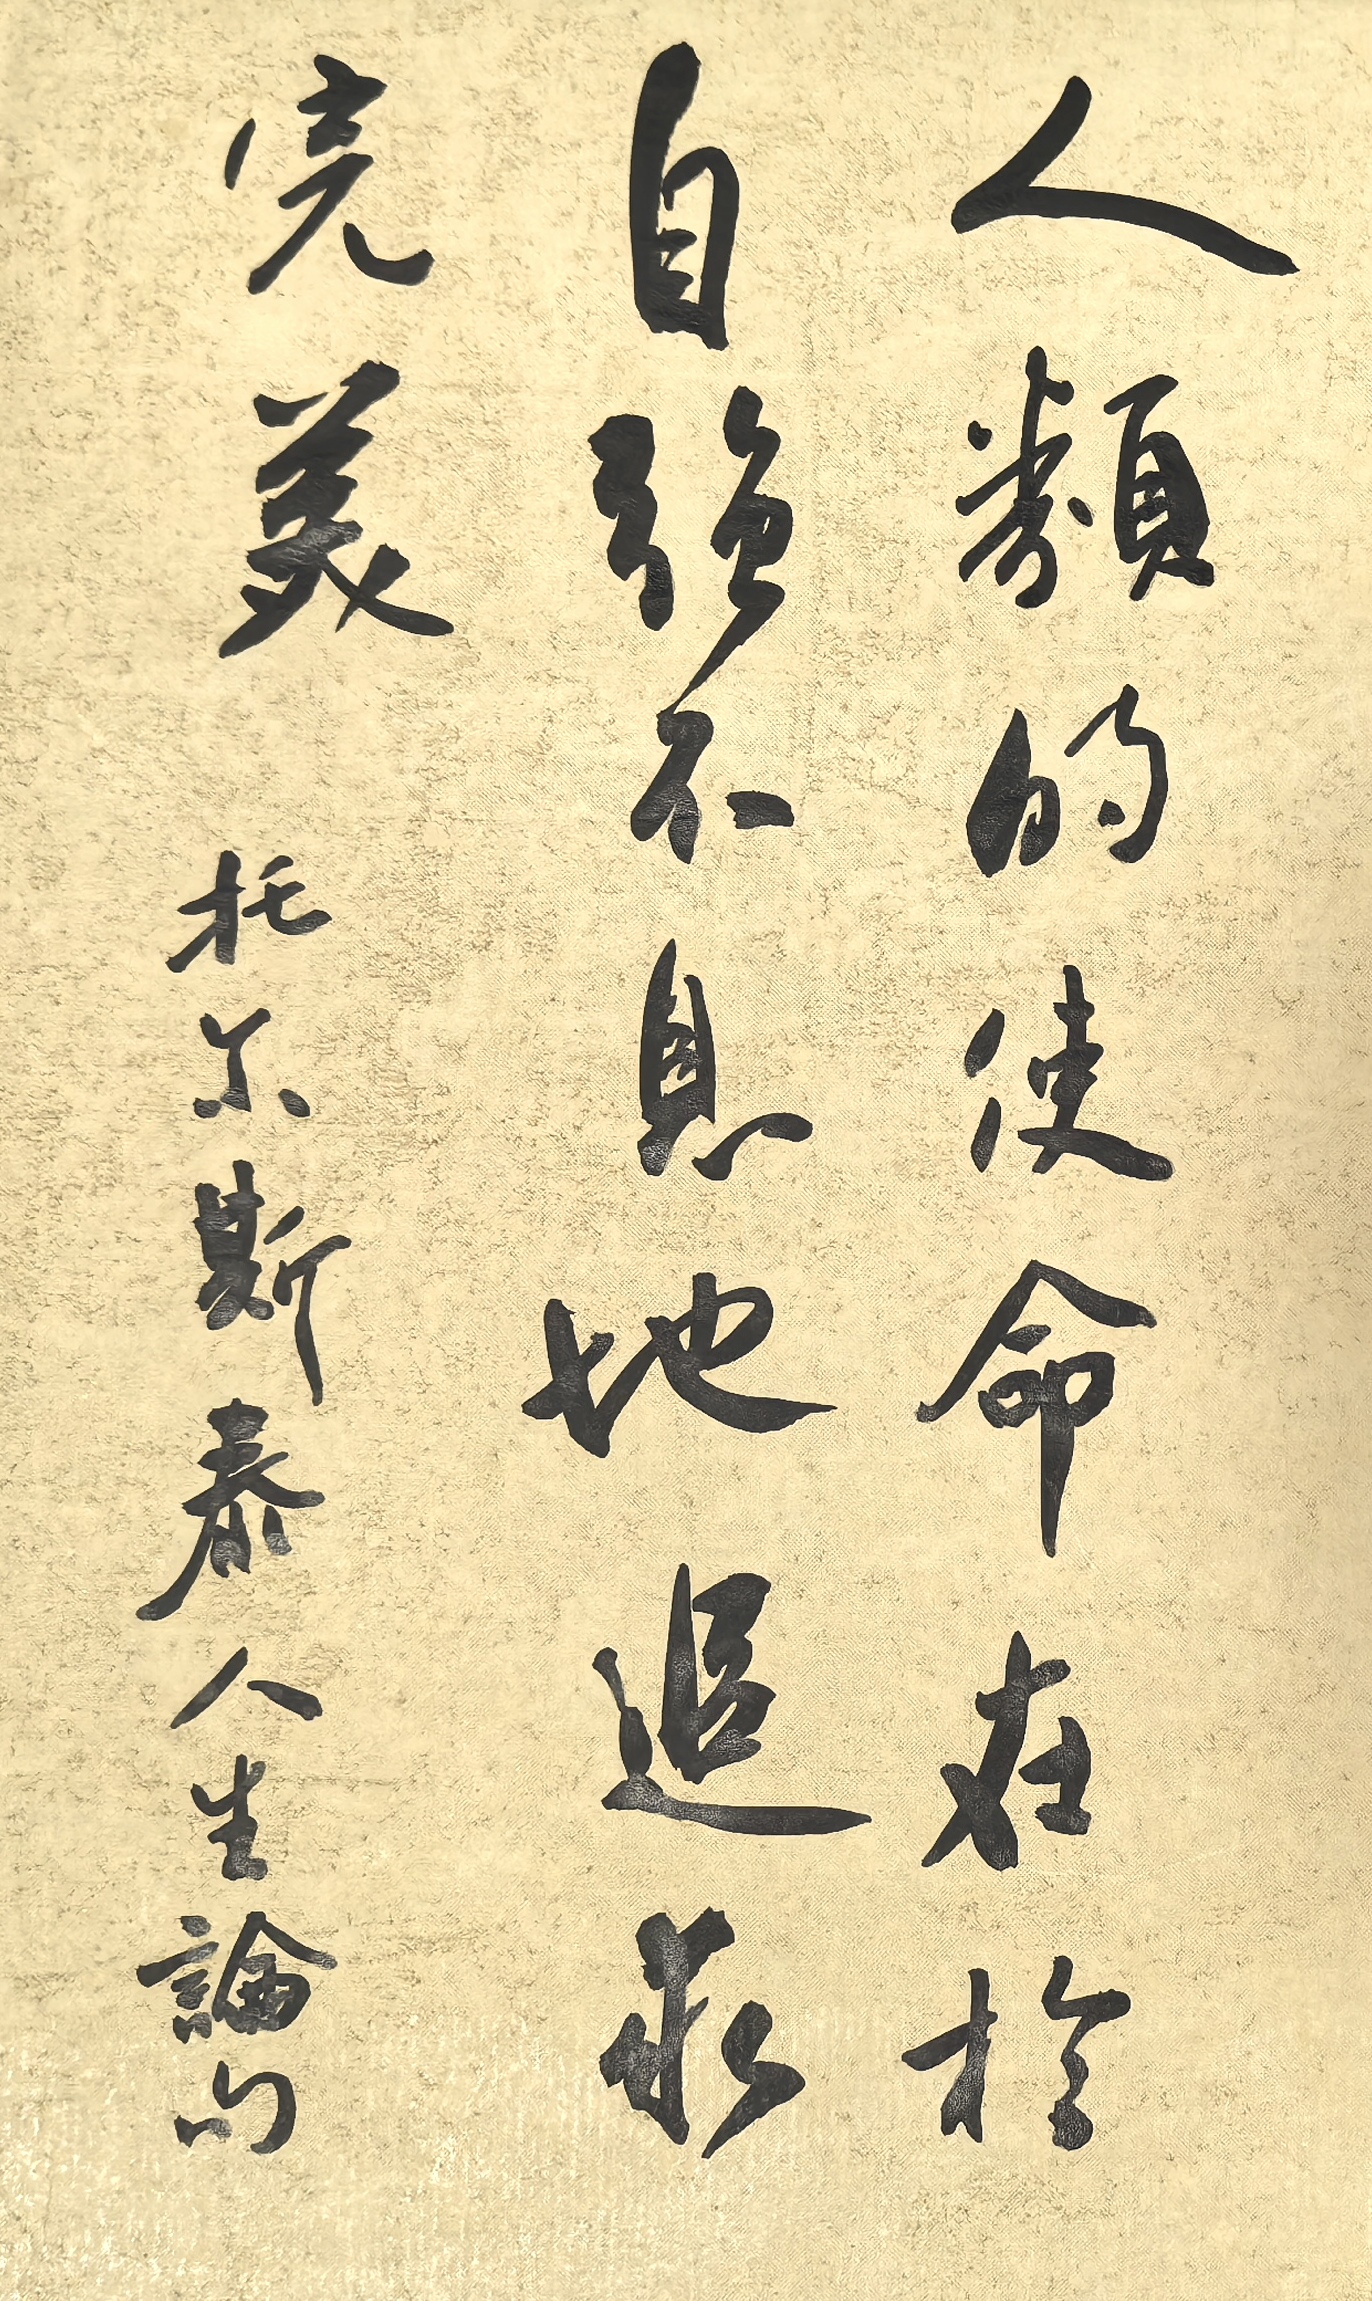 人類的使命在於
自強不息地追求
完美 托尔斯泰人生論句